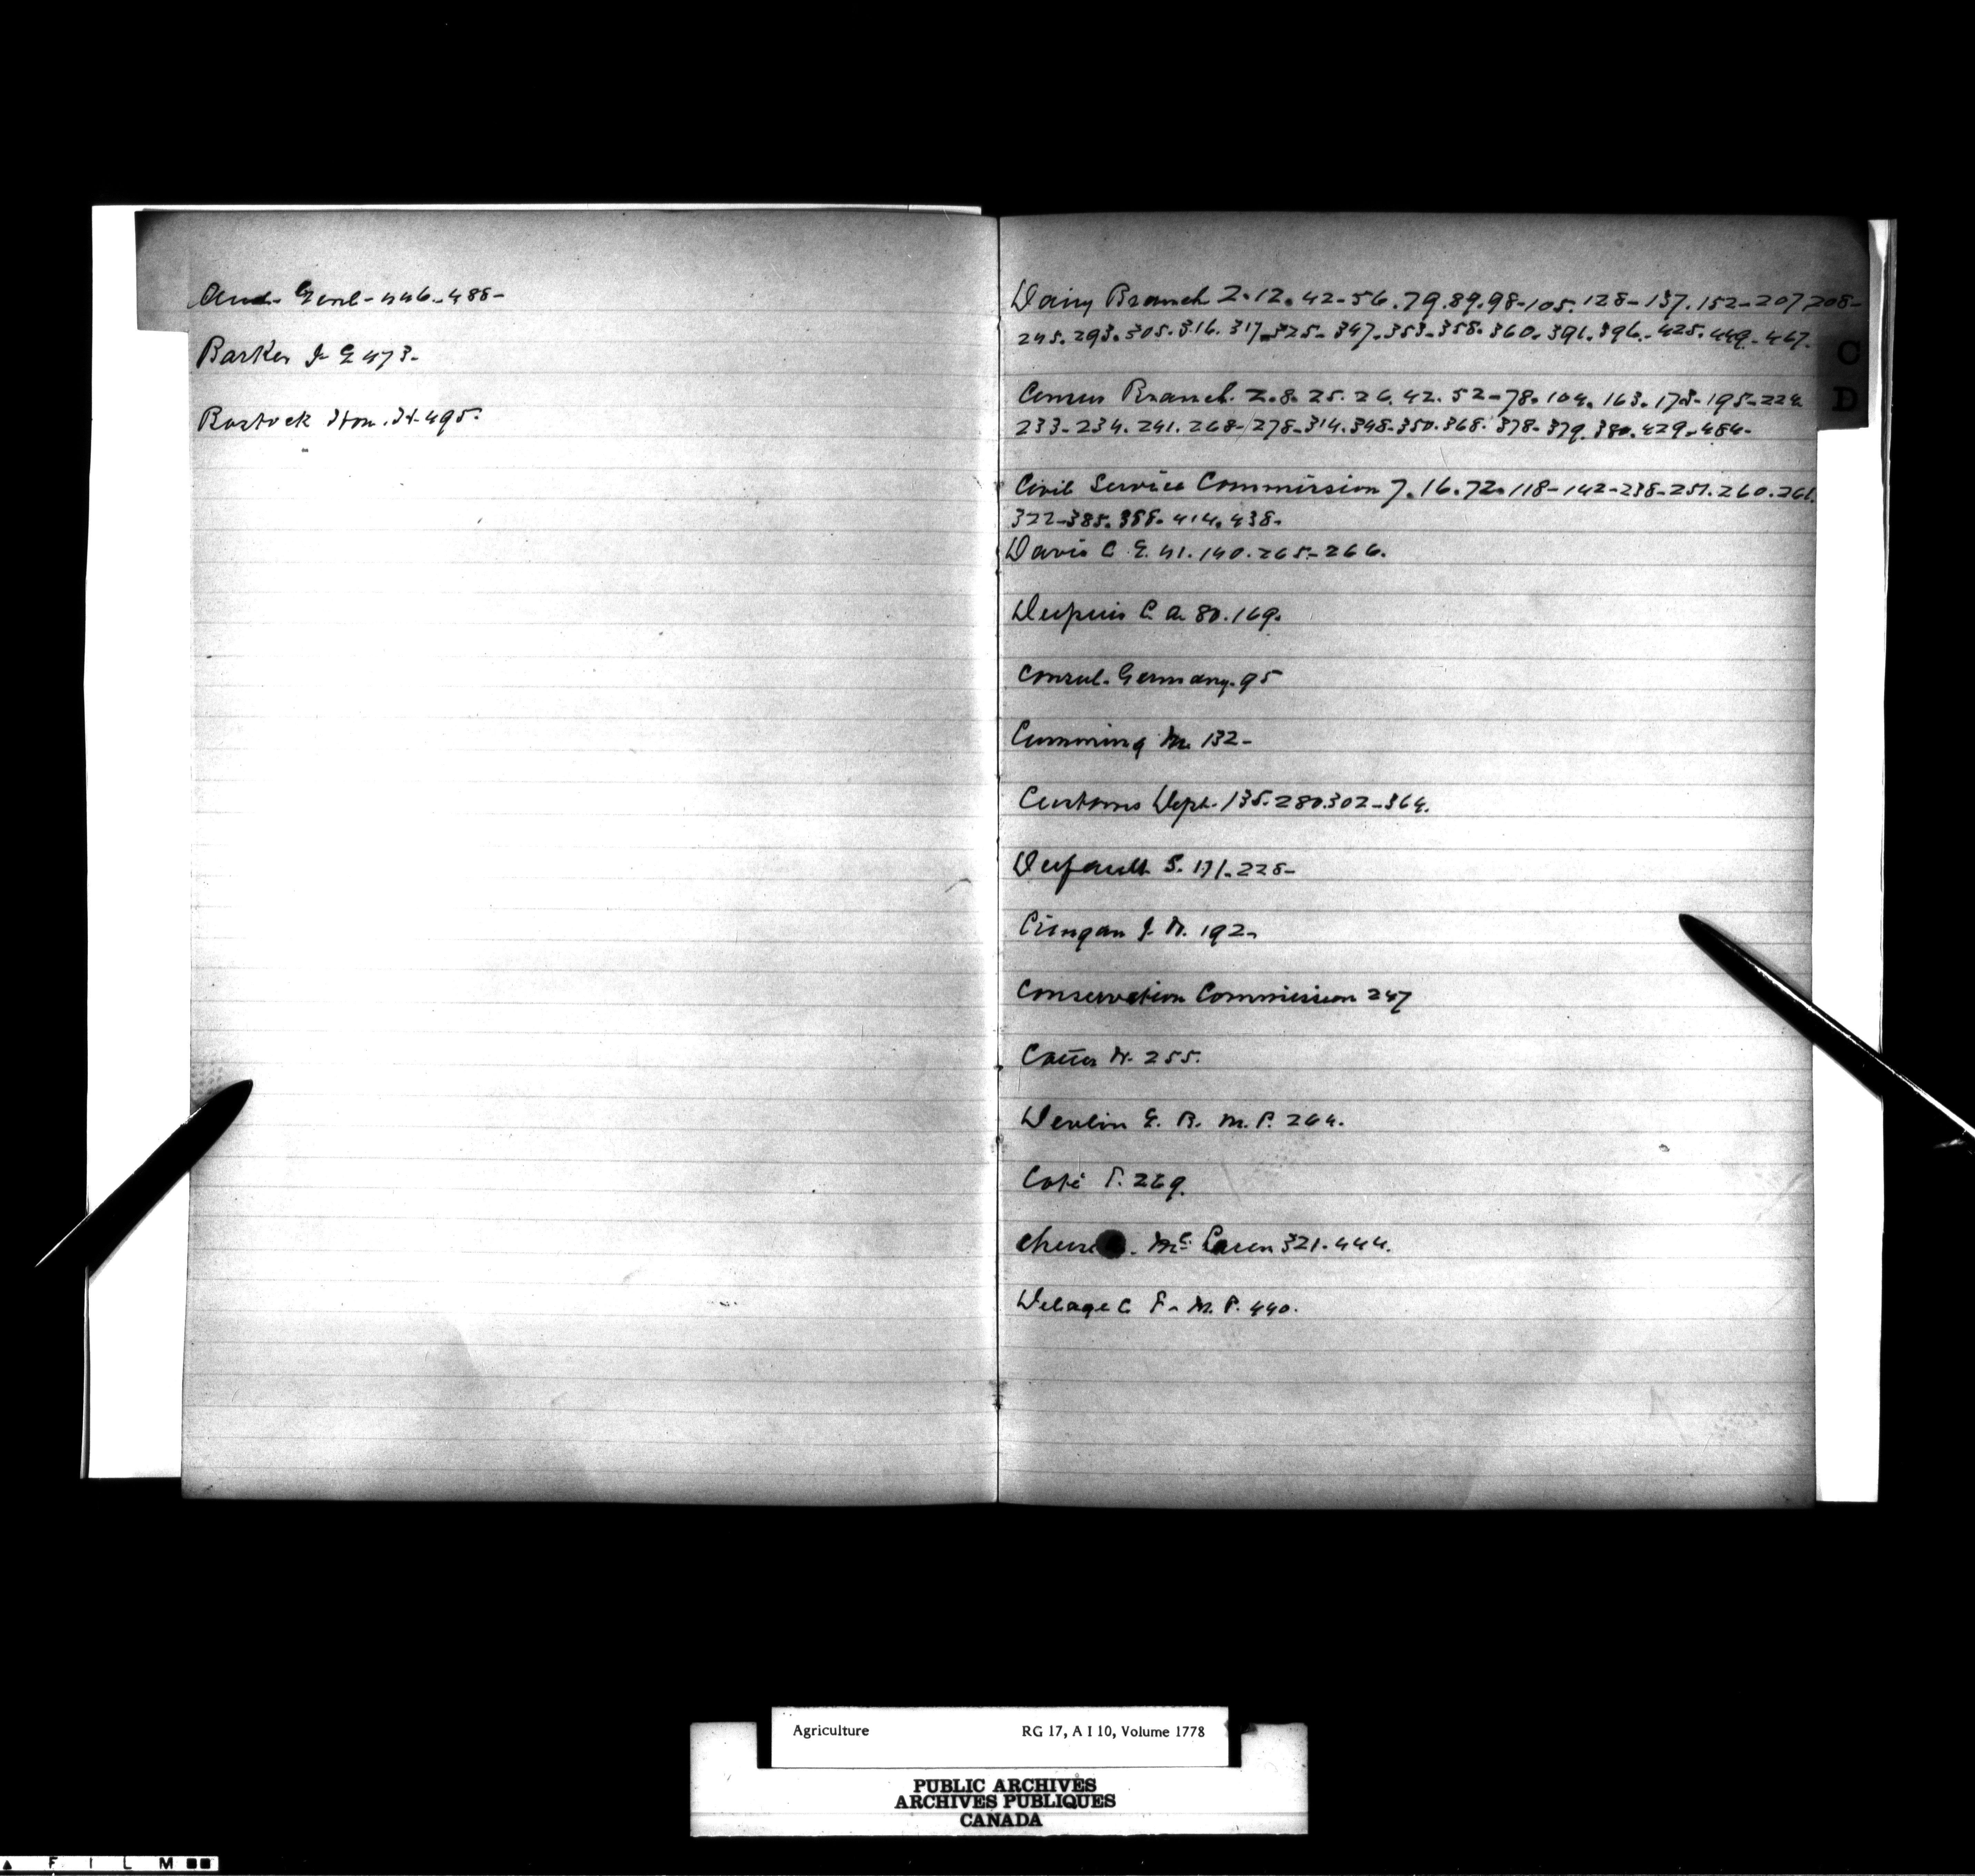 Aud. Genl - 446 - 488 -
Barker J. E 473 -
Bostock Hon. H. 495.
Dairy Branch 2. 12. 42 - 56. 79. 89. 98 - 105. 128 - 137. 152 - 207 208 -
245. 293. 305. 316. 317. 325 - 347. 353 - 358. 360. 391. 396. - 425. 449 - 467.
Census Branch. 2. 8. 25. 26. 42. 52 - 78. 104. 163. 178 - 195 - 224
233 - 234. 241. 268 - 278 - 314. 348 - 350. 368. 378 - 379. 380. 429 - 484 -
Civil Service Commission 7. 16. 72. 118 - 142 - 238 - 251. 260. 261.
322 - 385. 388. 414. 438.
Davis C. E. 41. 140. 265 - 266.
Dupuis C. A. 80. 169.
Consul. Germany. 95
Cumming M. 132 -
Customs Dept. 135. 280. 302 - 364.
Dufault S. 171. 228 -
J. N. 192 -
Conservation Commission 247
N. 255.
Devlin E. B. M. P. 264.
Coté P. 269.
Mc Laren 321. 444.
Delage C. F. M. P. 440.
C
D
Agriculture RG 17, A I 10, Volume 1778
PUBLIC ARCHIVES
ARCHIVES PUBLIQUES
CANADA
FILM